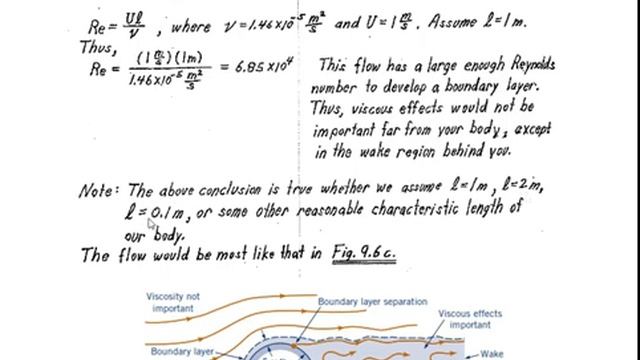 Re = Uℓ/ν , where ν = 1.46×10⁻⁵ m²/s and U = 1 m/s. Assume ℓ = 1m.
Thus,
Re = (1 m/s)(1m) / 1.46×10⁻⁵ m²/s = 6.85×10⁴
This flow has a large enough Reynolds
number to develop a boundary layer.
Thus, viscous effects would not be
important far from your body, except
in the wake region behind you.
Note: The above conclusion is true whether we assume ℓ=1m, ℓ=2m,
ℓ = 0.1m, or some other reasonable characteristic length of
our body.
The flow would be most like that in Fig. 9.6c.
Viscosity not
important
Boundary layer separation
Viscous effects
important
Boundary layer
Wake